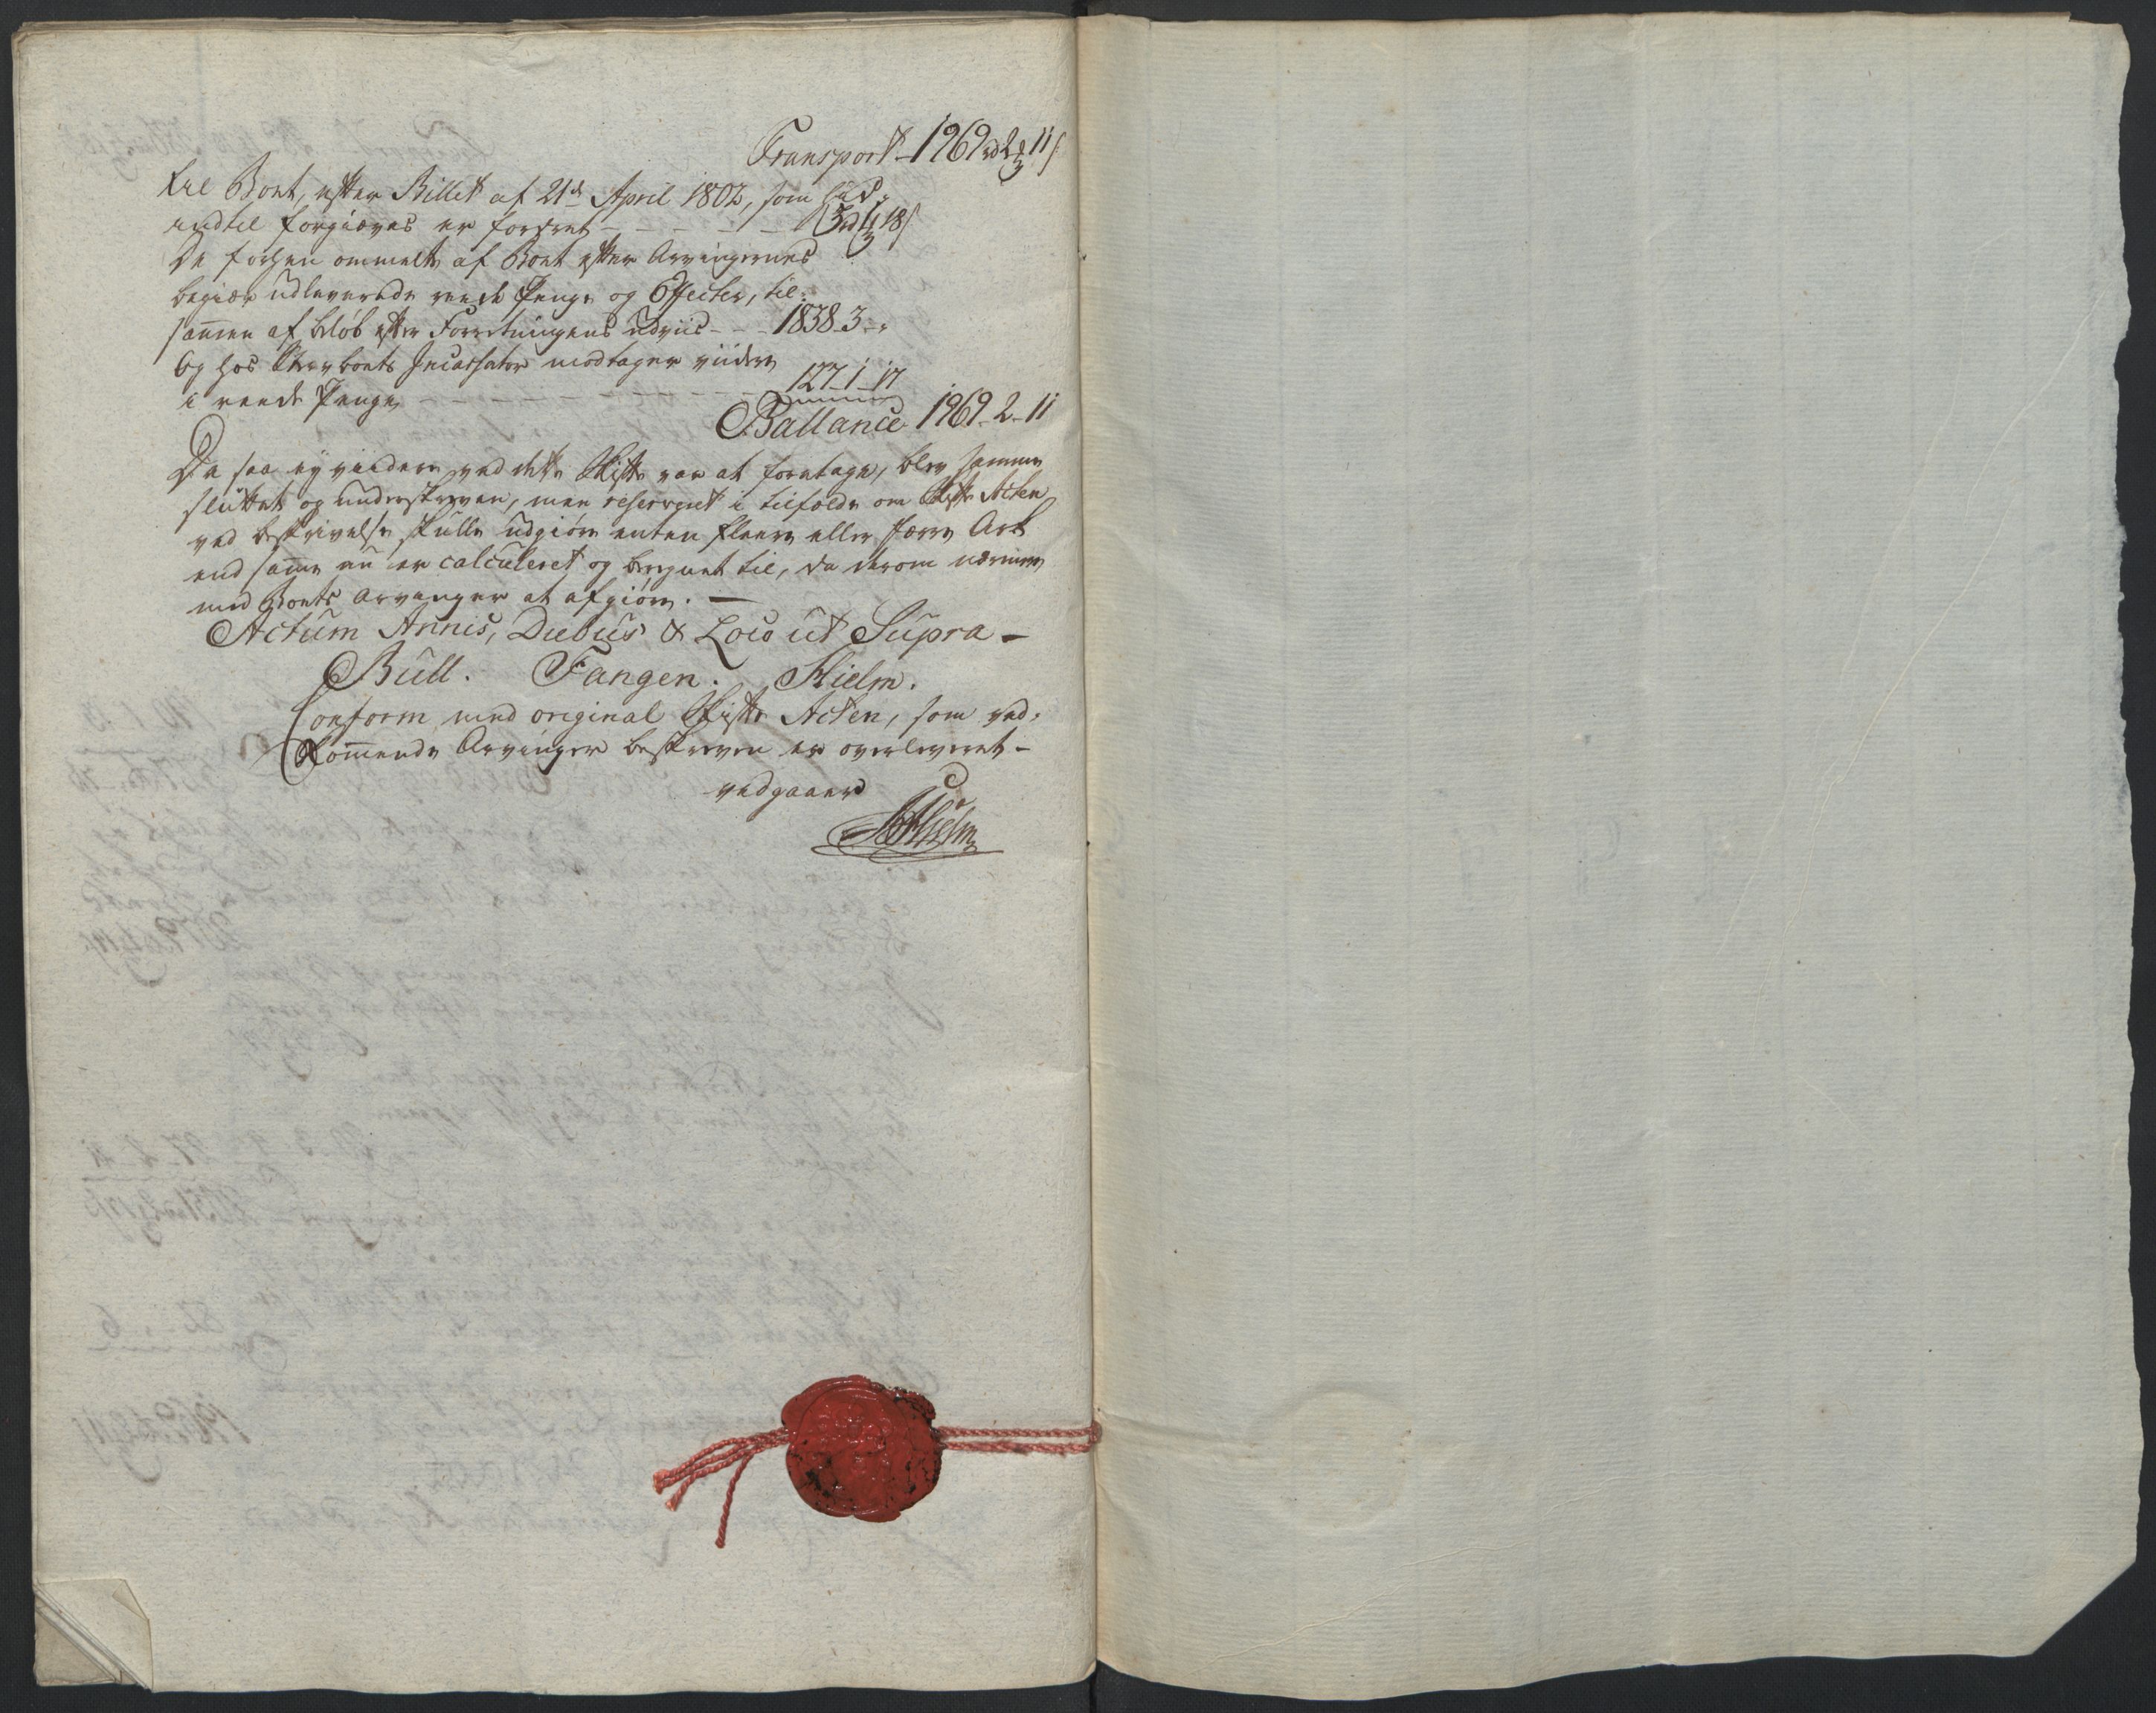 Transport - 1969 rd 2 ℳ 11 s
til Boet, efter Billet af 21de April 1802, som hid-
indtil forgiæves er fordret - - - - - 3 rd 1 ℳ 18 s
De forhen ommelte af Boet efter Arvingernes
begiær udleverede reede Penge og Effecter, til-
sam̄en af beløb efter Forretningens Udviis - - - 1838 - 3 - "
Og hos Sterboets Incassator modtager viidere
i reede Penge - - - - - - - - - 127 - 1 - 17
Ballance 1969 - 2 - 11
Da saa ey viidere ved dette Skifte var at foretage, blev samme
sluttet og underskreven, men reserveret i tilfælde om Skifte Acten
ved beskrivelse skulle udgiøre enten fleere eller færre Ark
end sam̄e nu er calculeret og beregnet til, da derom nærmere
med Boets Arvinger at afgiøre. —
Actum Annis, Diebus & Loco ut Supra -
Bull. Fangen. Hielm.
Conform med original Skifte Acten, som ved-
kom̄ende Arvinger beskreven er overleveret -
vedgaaer
Hielm